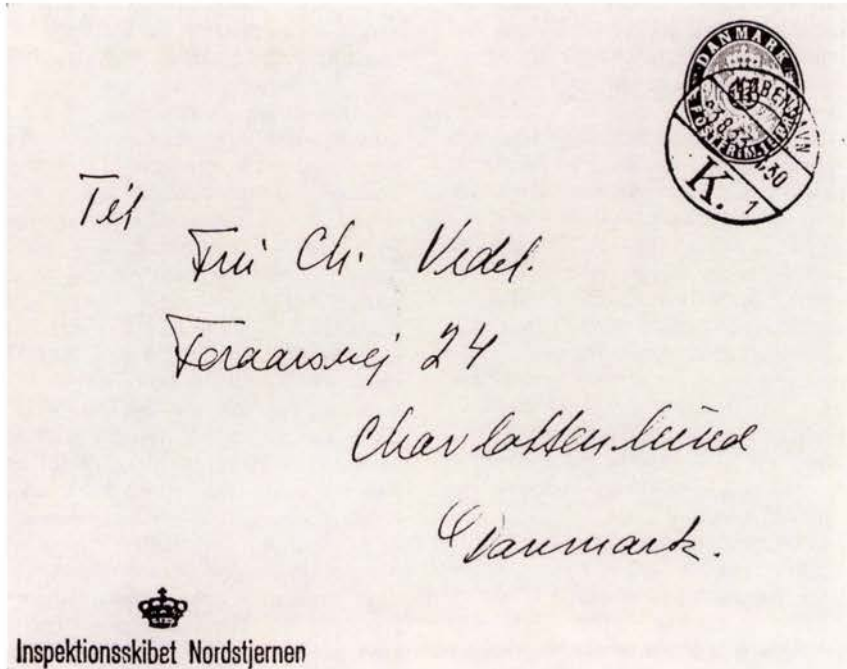 DANMARK
KØBENHAVN
K. 1
Til
Fru Ch. Vedel.
Foraarsvej 24
Charlottenlund
Danmark.
Inspektionsskibet Nordstjernen